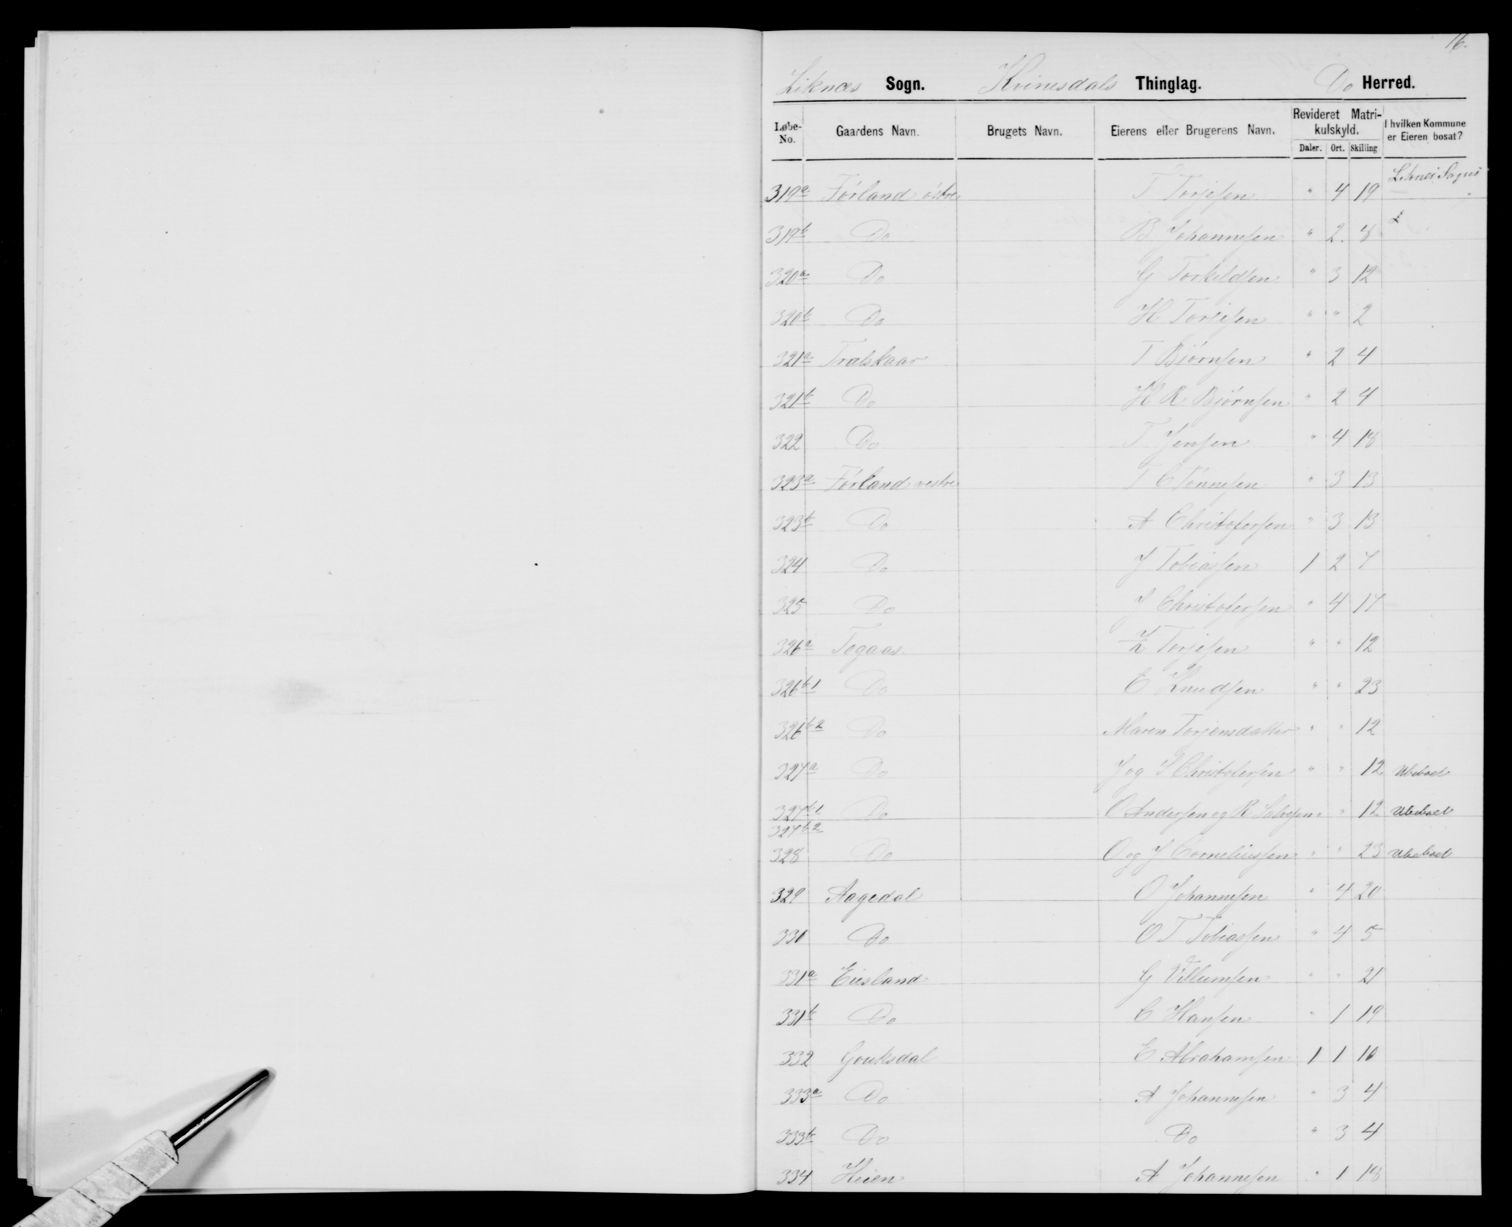 16.
Liknæs Sogn. Kvinesdals Thinglag. Do Herred.
Løbe-No. Gaardens Navn. Brugets Navn. Eierens eller Brugerens Navn. Revideret Matrikulskyld. Daler. Ort. Skilling I hvilken Kommune er Eieren bosat?
319a Førland østre T Torjesen " 4 19 Liknes Sogn
319b Do B Johannesen " 2 8
320a Do G Torkildsen " 3 12
320b Do H Torjesen " " 2
321a Trælskaar T Bjørnsen " 2 4
321b Do H R Bjørnsen " 2 4
322 Do T Jensen " 4 18
323a Førland vestre T C Tønnesen " 3 13
323b Do A Christofersen " 3 13
324 Do J Tobiassen 1 2 7
325 Do J Christofersen " 4 17
326a Togaas Torjesen " " 12
326b1 Do E Knudsen " " 23
326b2 Do Maren Torjensdatter " " 12
327a Do J og S Christofersen " " 12 Ubeboet
327b1 Do O Andersen og R Salvesen " " 12 Ubeboet
327b2
328 Do O og J Corneliussen " " 23 Ubeboet
329 Aagedal O Johannesen " 4 20
330 Do O T Tobiassen " 4 5
331a Eiesland G Villumsen " " 21
331b Do C Hansen " 1 19
332 Gouksdal E Abrahamsen 1 1 10
333a Do A Johannesen " 3 4
333b Do Do " 3 4
334 Heien A Johannesen " 1 18